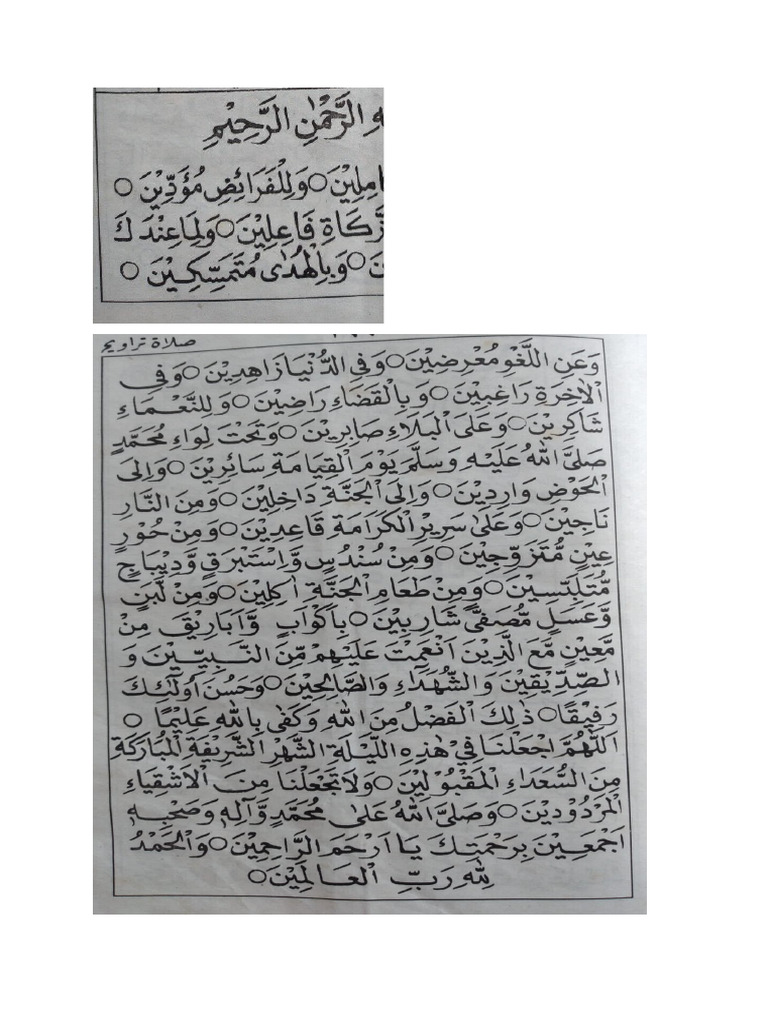 الرَّحْمٰنِ الرَّحِيْمِ
وَلِلْفَرَائِضِ مُؤَدِّيْنَ○
فَاعِلِيْنَ○وَلِمَا عِنْدَكَ
وَبِالْهُدٰى مُتَمَسِّكِيْنَ○
صلاة تراويح
وَعَنِ اللَّغْوِ مُعْرِضِيْنَ○وَفِي الدُّنْيَا زَاهِدِيْنَ○وَفِي
الْاٰخِرَةِ رَاغِبِيْنَ○وَبِالْقَضَاءِ رَاضِيْنَ○وَلِلنَّعْمَاءِ
شَاكِرِيْنَ○وَعَلَى الْبَلَاءِ صَابِرِيْنَ○وَتَحْتَ لِوَاءِ مُحَمَّدٍ
صَلَّى اللهُ عَلَيْهِ وَسَلَّمَ يَوْمَ الْقِيَامَةِ سَائِرِيْنَ○وَاِلَى
الْحَوْضِ وَارِدِيْنَ○وَاِلَى الْجَنَّةِ دَاخِلِيْنَ○وَمِنَ النَّارِ
نَاجِيْنَ○وَعَلٰى سَرِيْرِ الْكَرَامَةِ قَاعِدِيْنَ○وَمِنْ حُوْرٍ
عِيْنٍ مُّتَزَوِّجِيْنَ○وَمِنْ سُنْدُسٍ وَّاِسْتَبْرَقٍ وَّدِيْبَاجٍ
مُّتَلَبِّسِيْنَ○وَمِنْ طَعَامِ الْجَنَّةِ اٰكِلِيْنَ○وَمِنْ لَّبَنٍ
وَّعَسَلٍ مُّصَفًّى شَارِبِيْنَ○بِاَكْوَابٍ وَّاَبَارِيْقَ مِنْ
مَّعِيْنٍ مَّعَ الَّذِيْنَ اَنْعَمْتَ عَلَيْهِمْ مِّنَ النَّبِيِّيْنَ وَ
الصِّدِّيْقِيْنَ وَالشُّهَدَاءِ وَالصَّالِحِيْنَ○وَحَسُنَ اُولٰئِكَ
رَفِيْقًا○ذٰلِكَ الْفَضْلُ مِنَ اللهِ وَكَفٰى بِاللهِ عَلِيْمًا○
اَللّٰهُمَّ اجْعَلْنَا فِيْ هٰذِهِ اللَّيْلَةِ الشَّهْرِ الشَّرِيْفَةِ الْمُبَارَكَةِ
مِنَ السُّعَدَاءِ الْمَقْبُوْلِيْنَ○وَلَا تَجْعَلْنَا مِنَ الْاَشْقِيَاءِ
الْمَرْدُوْدِيْنَ○وَصَلَّى اللهُ عَلٰى مُحَمَّدٍ وَّاٰلِهٖ وَصَحْبِهٖ
اَجْمَعِيْنَ بِرَحْمَتِكَ يَا اَرْحَمَ الرَّاحِمِيْنَ○وَالْحَمْدُ
لِلّٰهِ رَبِّ الْعَالَمِيْنَ○